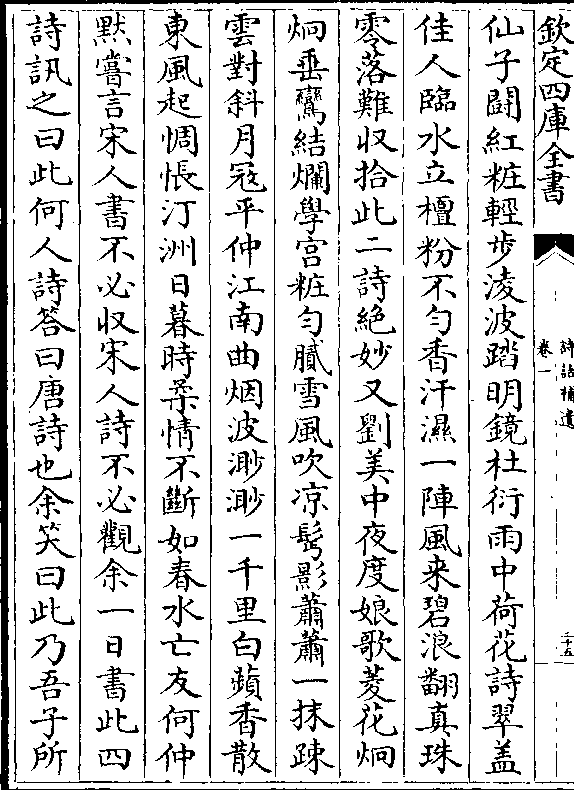 欽定四庫全書
詩話補遺
卷一
二十五
仙子闘紅粧輕步淩波踏明鏡杜衍雨中荷花詩翠盖
佳人臨水立檀粉不勻香汗濕一陣風来碧浪翻真珠
零落難収拾此二詩絶妙又劉美中夜度娘歌菱花炯
炯垂鸞結爛學宫粧勻膩雪風吹凉髩影蕭蕭一抹踈
雲對斜月冦平仲江南曲烟波渺渺一千里白蘋香散
東風起惆悵汀洲日暮時柔情不斷如春水亡友何仲
黙嘗言宋人書不必収宋人詩不必觀余一日書此四
詩訊之曰此何人詩答曰唐詩也余笑曰此乃吾子所